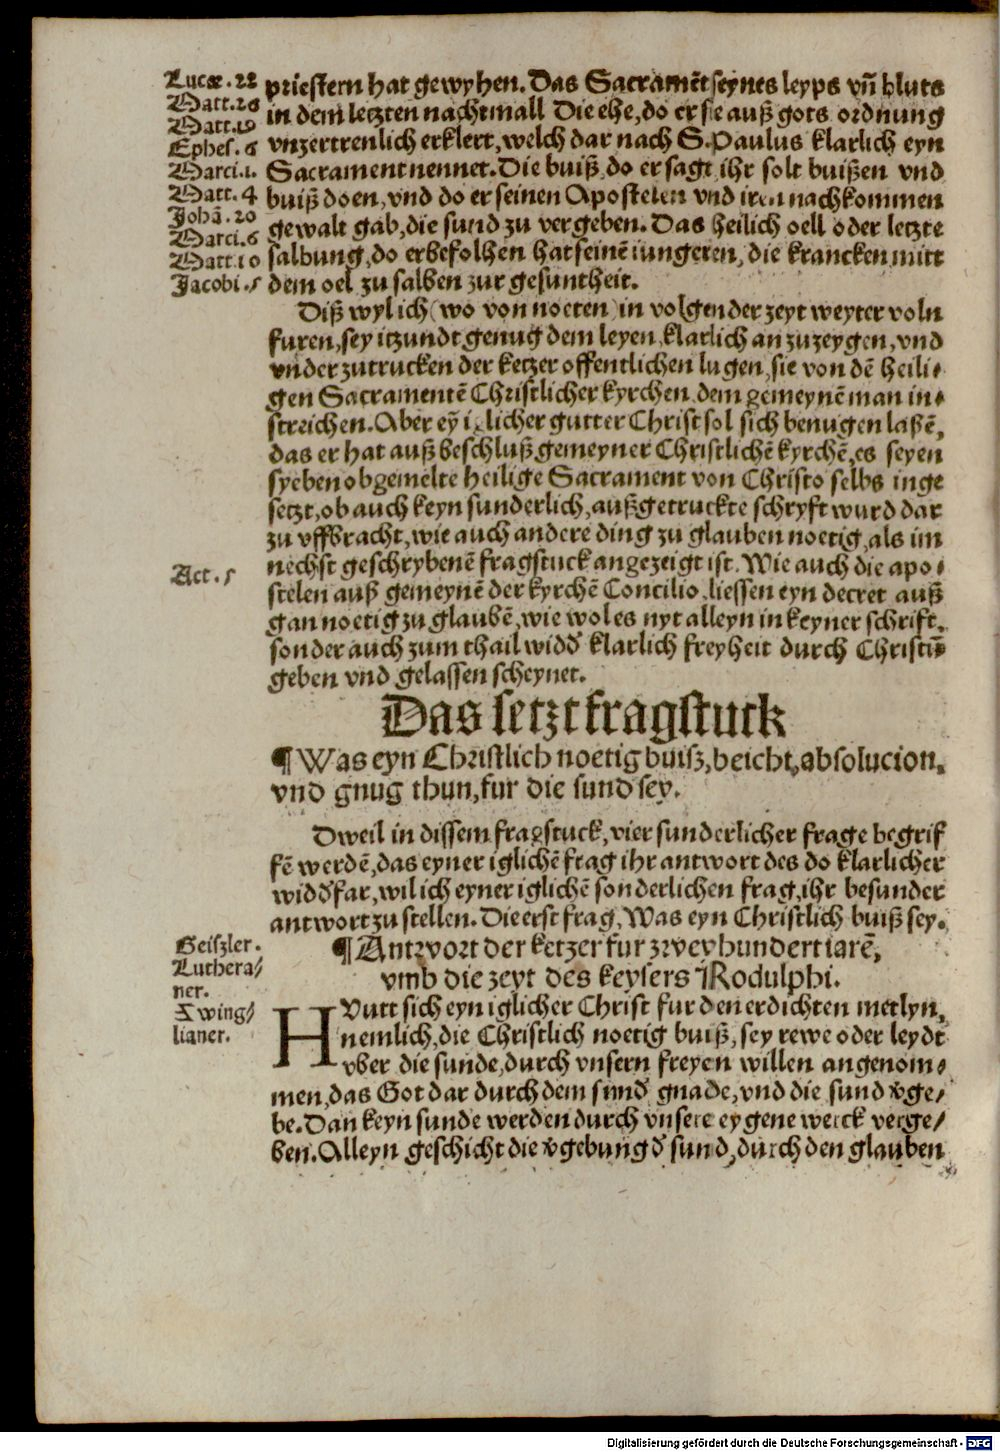 Lucæ. 22
Matt. 26
Matt. 19
Ephes. 6
Marci. 1.
Matt. 4
Johã. 20
Marci. 6
Matt. 10
Jacobi. 5
priestern hat gewyhen. Das Sacramẽt seynes leyps vñ bluts
in dem letzten nachtmall Die ehe, do er sie auß gots ordnung
vnzertrenlich erklert, welch dar nach S. Paulus klarlich eyn
Sacrament nennet. Die buiß, do er sagt ihr solt buißen vnd
buiß doen, vnd do er seinen Apostelen vnd iren nachkommen
gewalt gab, die sund zu vergeben. Das heilich oell oder letzte
salbung, do er befolhen hat seinẽ iungeren, die krancken mitt
dem oel zu salben zur gesuntheit.
Diß wyl ich (wo von noeten) in volgender zeyt weyter voln
furen, sey itzundt genug dem leyen, klarlich an zu zeygen, vnd
vnder zutrucken der ketzer offentlichen lugen, sie von dẽ heili⸗
gen Sacramentẽ Christlicher kyrchen, dem gemeynẽ man in⸗
streichen. Aber eyn̄ iglicher gutter Christ sol sich benugen laßẽ,
das er hat auß beschluß gemeyner Christlichẽ kyrchẽ, es seyen
syeben obgemelte heilige Sacrament von Christo selbs inge
setzt, ob auch keyn sunderlich, außgetruckte schryft wurd dar
zu vffbracht, wie auch andere ding zu glauben noetig, als im
nechst geschrybenẽ fragstuck angezeigt ist. Wie auch die apo⸗
Act. 5
stelen auß gemeynẽ der kyrchẽ Concilio, liessen eyn decret auß
gan noetig zu glaubẽ, wie wol es nyt alleyn in keyner schrift,
sonder auch zum thail widď klarlich freyheit durch Christũ⸗
geben vnd gelassen scheynet.
Das setzt fragstuck
¶ Was eyn Christlich noetig buisz, beicht, absolucion,
vnd gnug thun, fur die sund sey.
Dweil in dissem fragstuck, vier sunderlicher frage begrif
fẽ werdẽ, das eyner iglichẽ frag ihr antwort des do klarlicher
widďfar, wil ich eyner iglichẽ sonderlichen frag, ihr besunder
antwort zu stellen. Die erst frag, Was eyn Christlich buiß sey.
Geiszler.
Luthera⸗/
ner.
Zwing⸗/
lianer.
¶ Antwort der ketzer fur zwey hundert iarẽ,
vmb die zeyt des keysers Rodulphi.
HVutt sich eyn iglicher Christ fur den erdichten metlyn,
nemlich, die Christlich noetig buiß, sey rewe oder leydt
vber die sunde, durch vnsern freyen willen angenom⸗
men, das Got dar durch dem sunď gnade, vnd die sund v̄ge/
be. Dan keyn sunde werden durch vnsere eygene werck verge/
ben. Alleyn geschicht die v̄gebung ď sund, durch den glauben
Digitalisierung gefördert durch die Deutsche Forschungsgemeinschaft - DFG